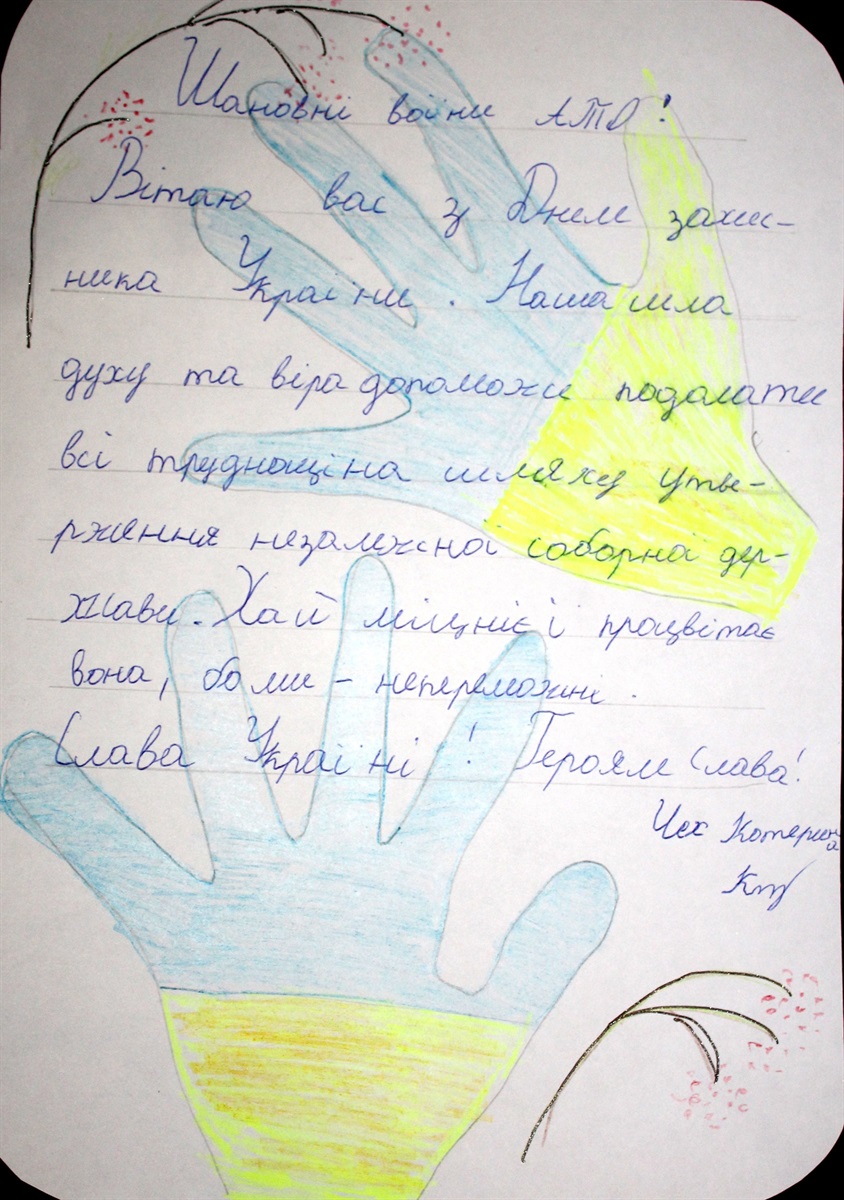 Шановні воїни АТО!
Вітаю вас з Днем захис-
ника України. Наша мла
духу та віра допоможи подолати
всі труднощі на шляху утве-
рження незалежної соборної дер-
жави. Хай міцніє і процвітає
вона, бо ми - непереможні.
Слава Україні! Героям Слава!
Чех Катерина